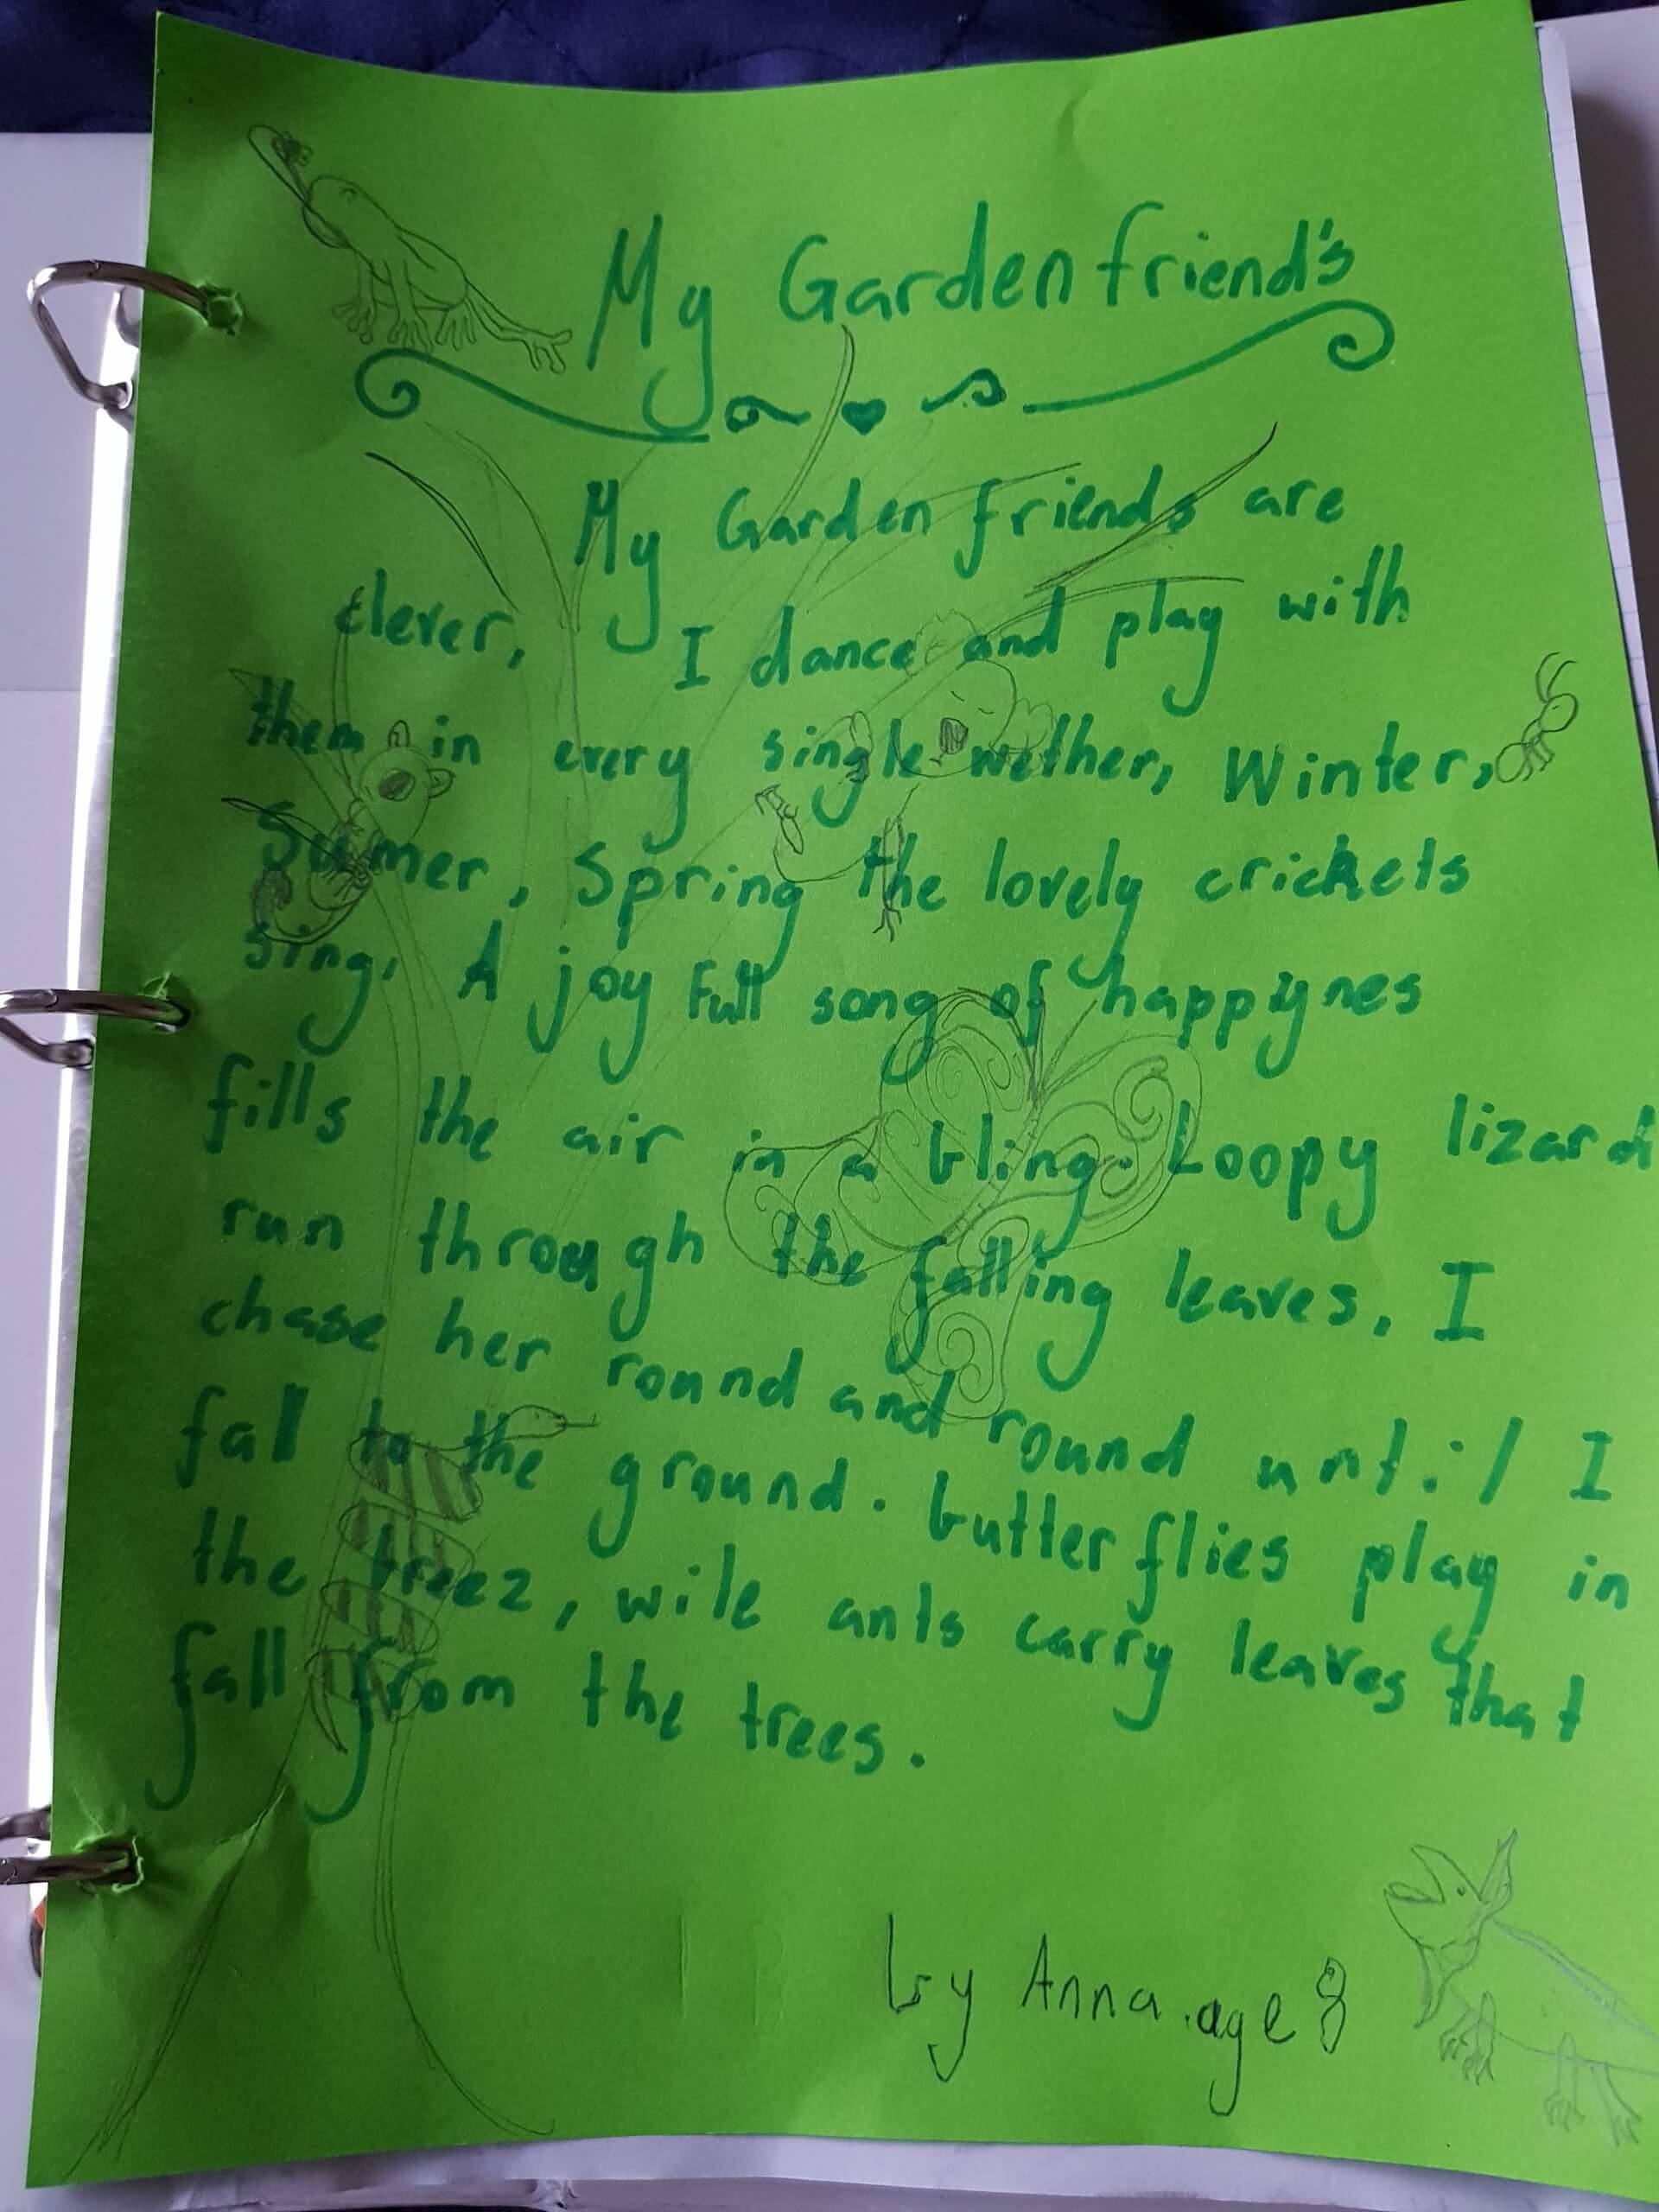 My Garden friend's
My Garden friends are
clever, I dance and play with
them in every single wether, Winter,
Sumer, Spring the lovely crickets
sing. A joy Full song of happynes
fills the air in a bling. Loopy lizard
run through the falling leaves. I
chase her round and round until I
fall to the ground. butterflies play in
the treez, wile ants carry leaves that
fall from the trees.
by Anna. age 8